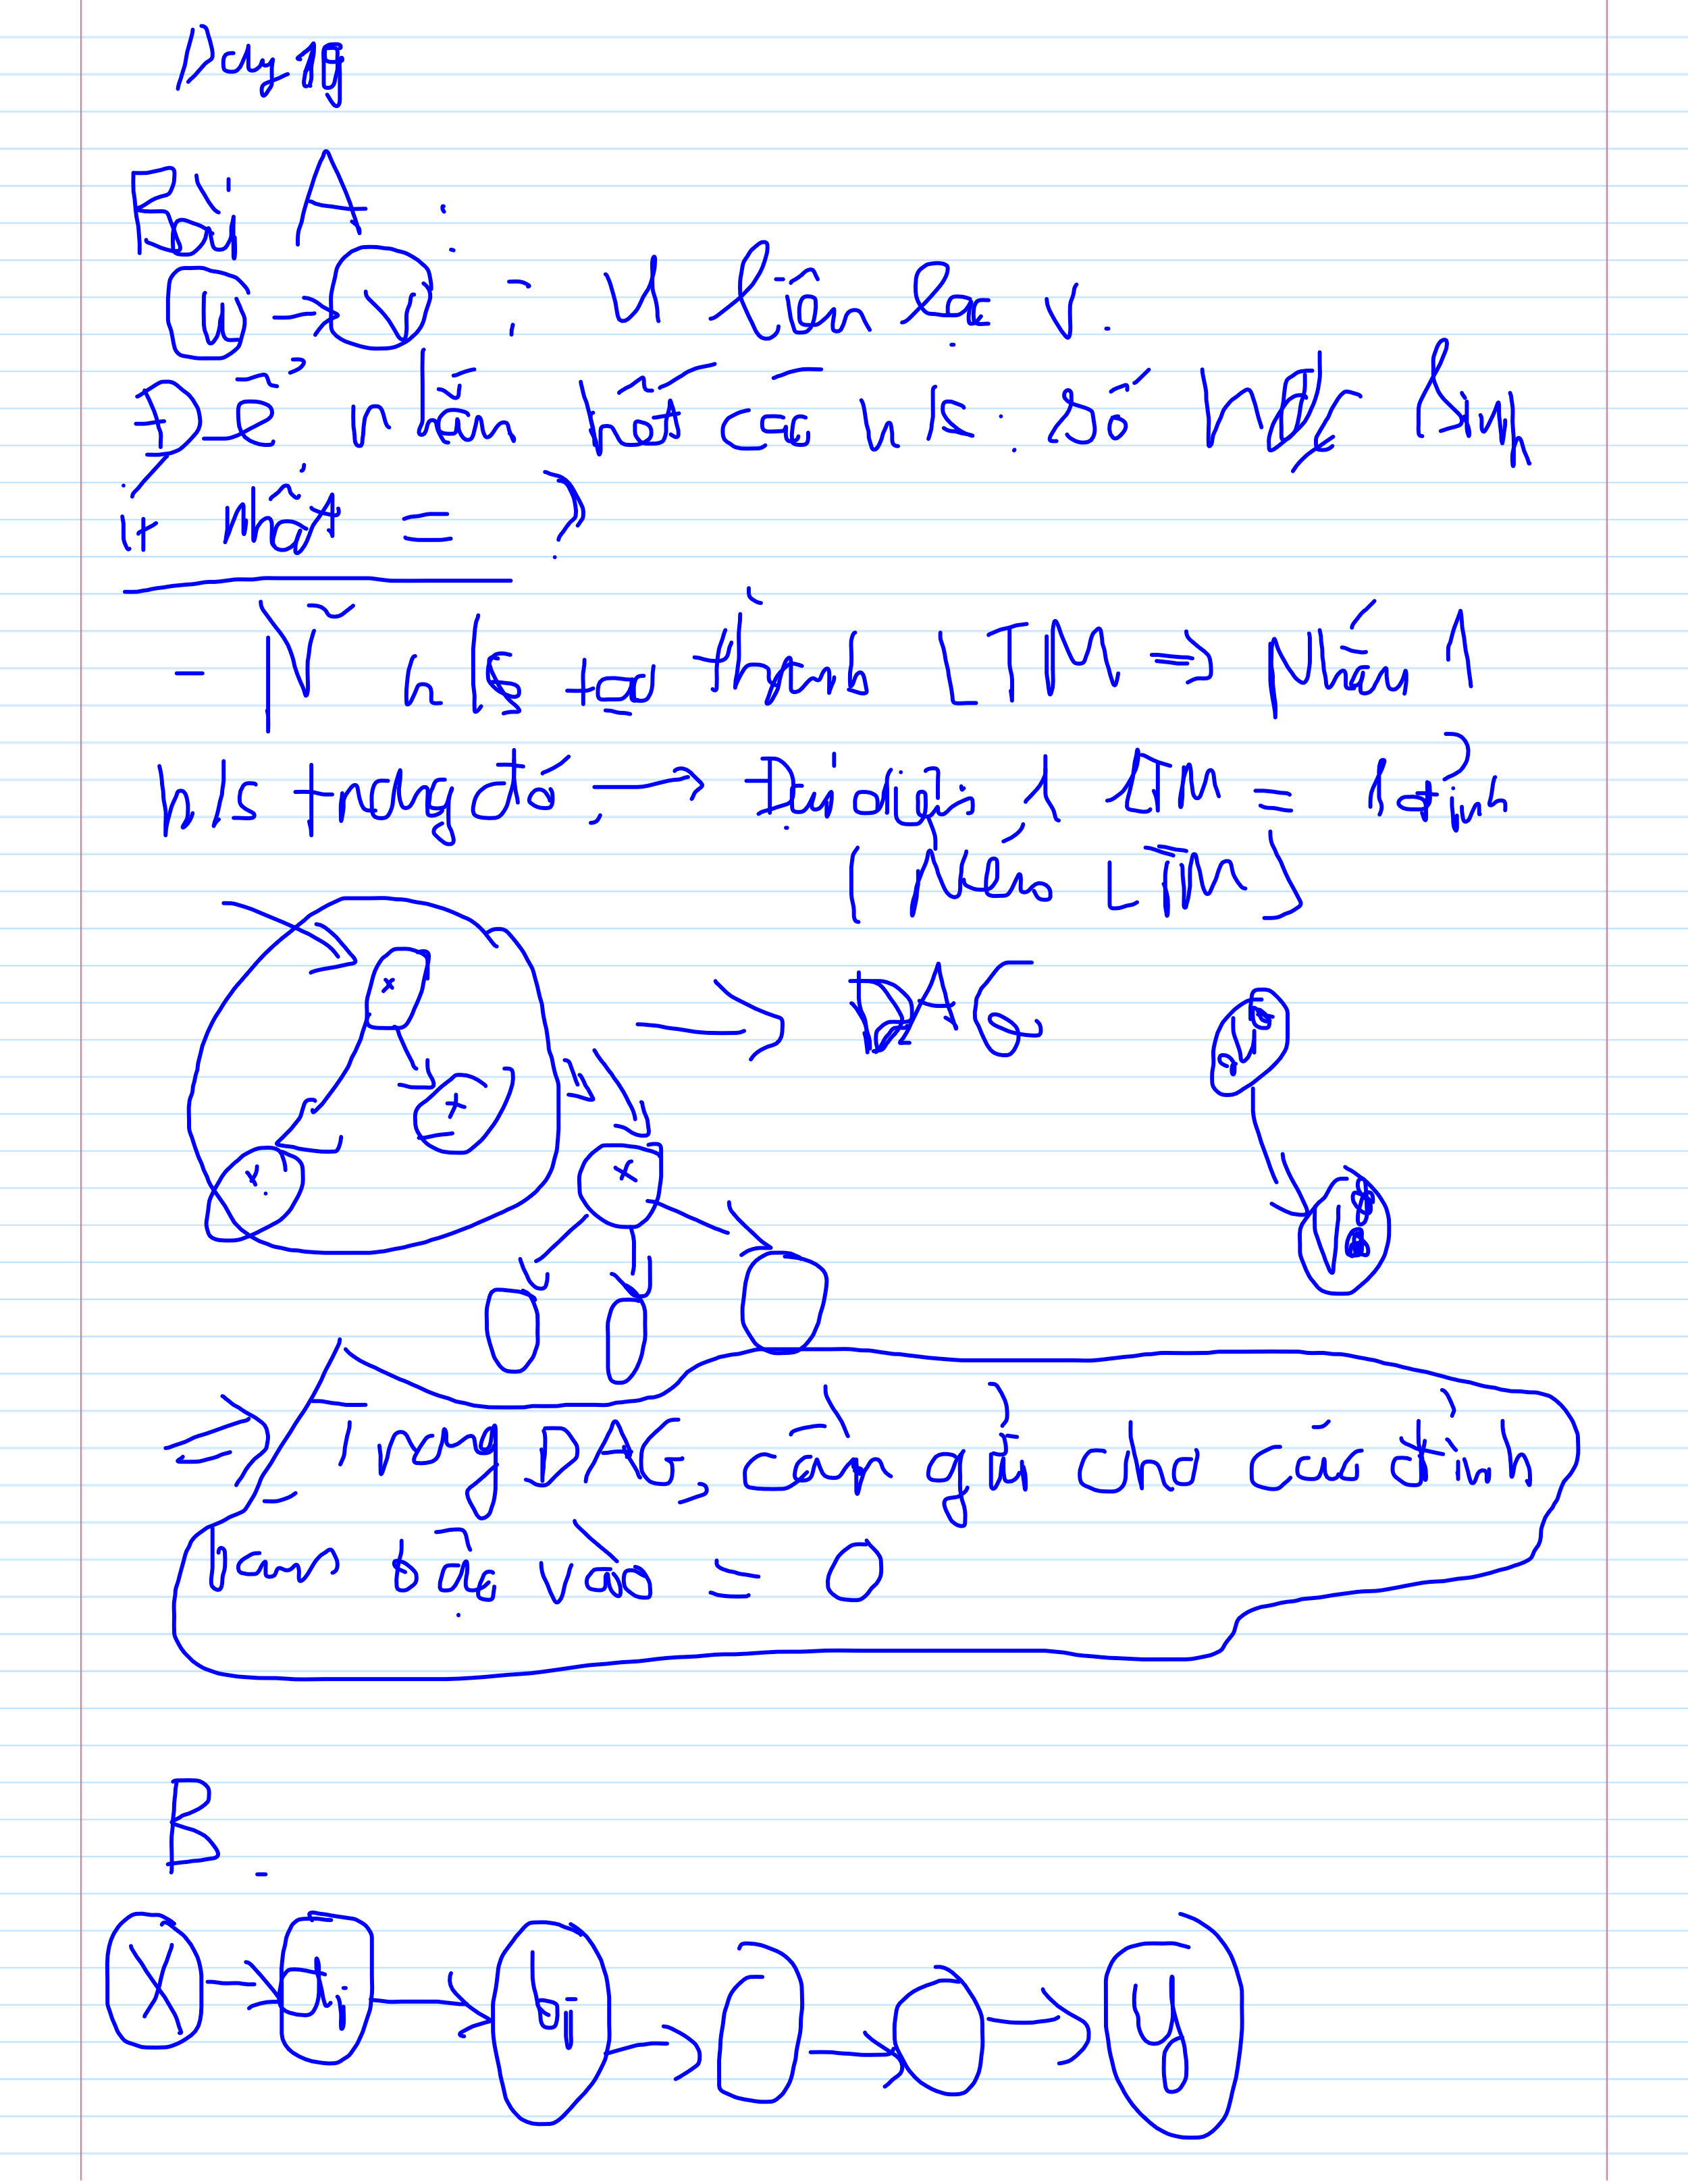 Day 19
Bài A :
u → v : u liên lạc v.
Để nhắn tất cả hs : số
ít nhất = ?
- Nếu hs tạo thành LTM => Nhắn 1
hs trong đó. → Đại diện 1 LTM = 1 đỉnh
( Nén LTM )
→ DAG
u
v
=> Trong DAG, cần gửi cho các đỉnh
bậc vào = 0
B.
x → ai → bi → → → y